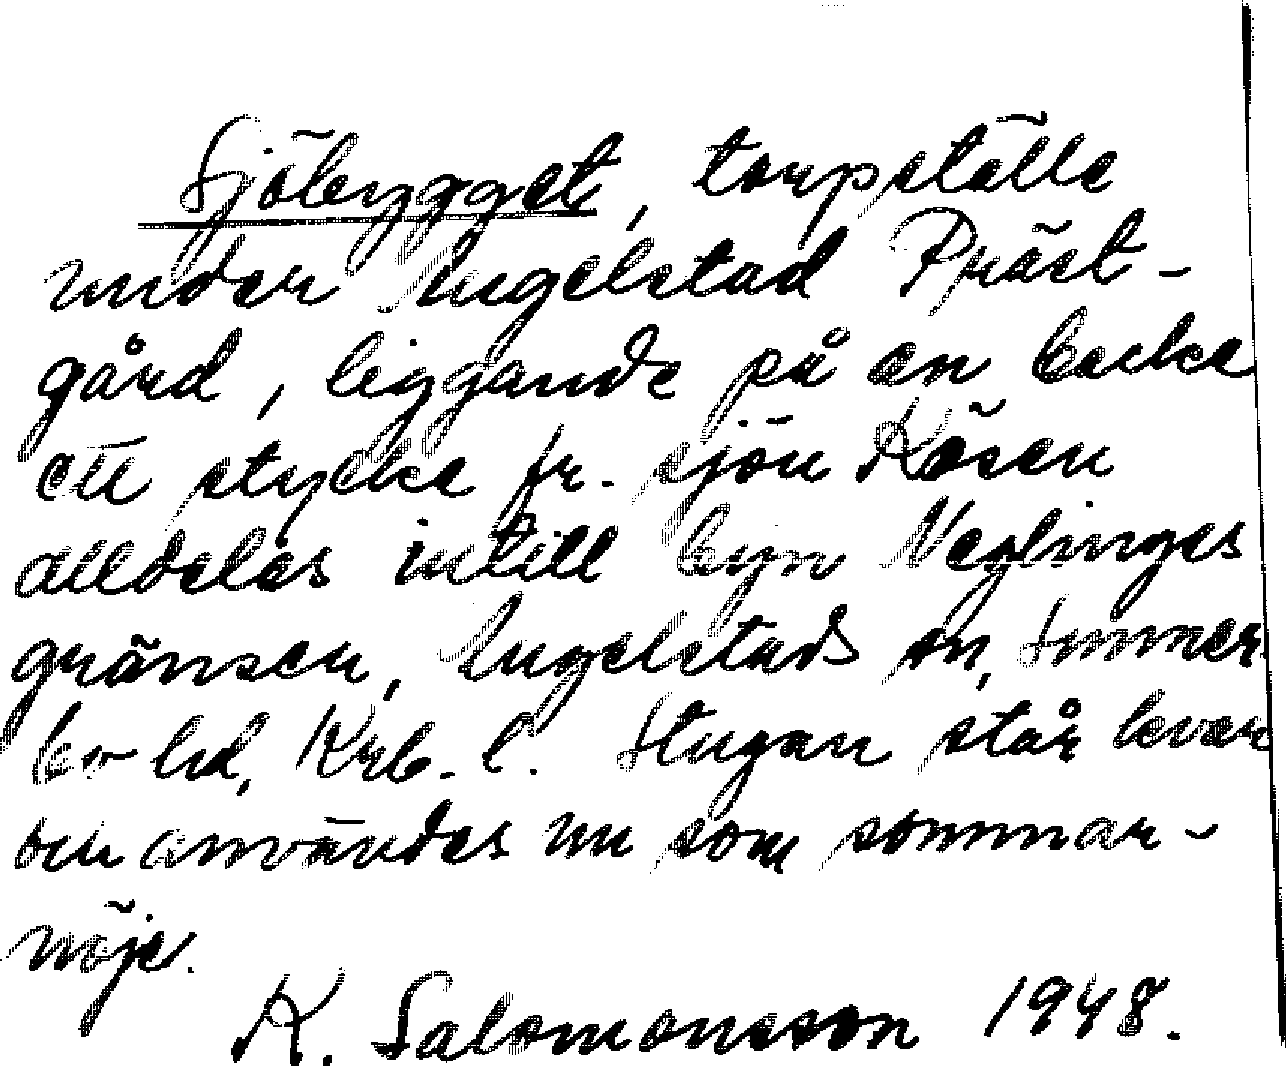 Sjöbygget, torpställe
under Ingelstad Präst-
gård, liggande på en backe
ett stycke fr. sjön Rösen
alldeles intill byn Neglinges
gränsen, Ingelstads sn,
hd, Krb. l. Stugan står kvar
och användes nu som sommar-
nöje.
K. Salomonsson 1948.